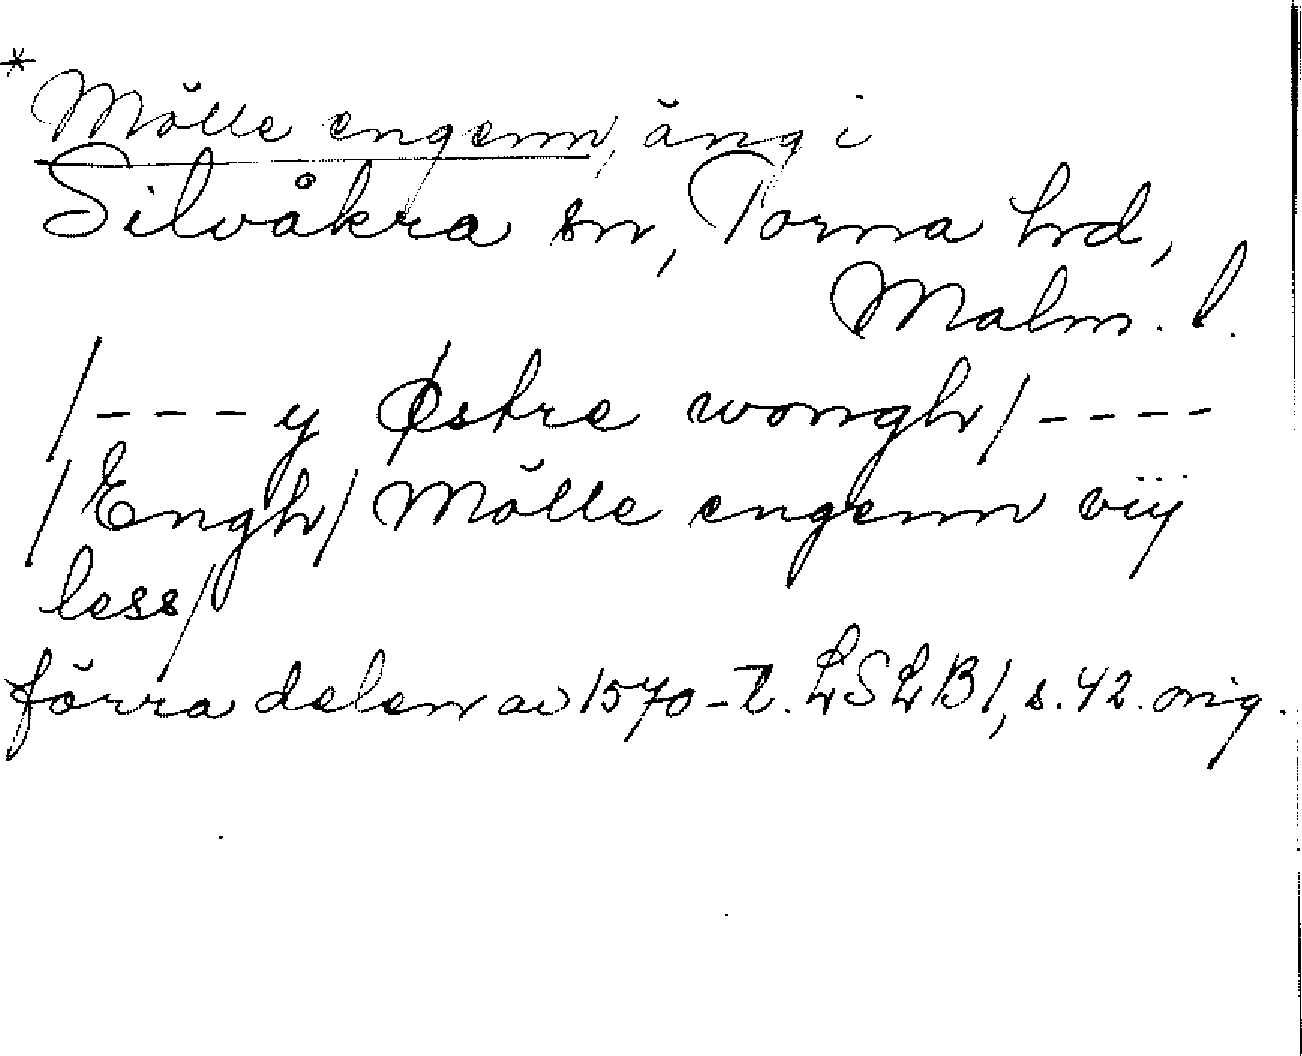 * Mölle engenn, äng i
Silvåkra sn, Torna hd,
Malm. l.
/---y Østre wongh/----
/Engh/ Mölle engenn viij
less/
förra delen av 1570-t. LSLB1, s. 42. orig.